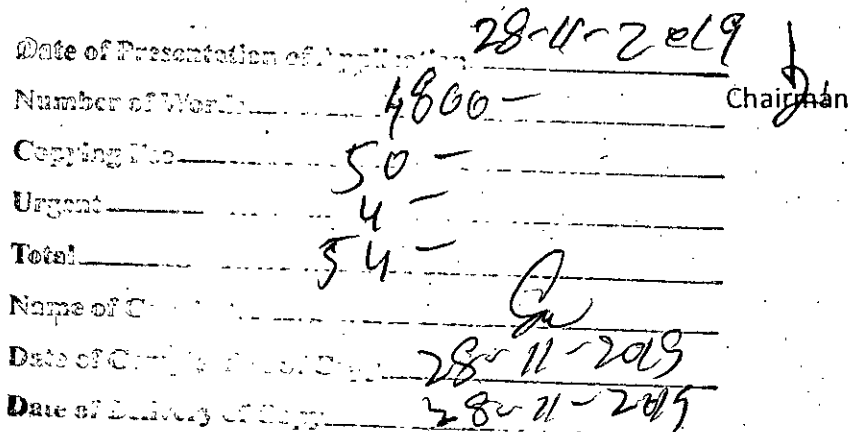 Date of Presentation of Application 28-11-2019
Number of Words 4800-
Chairman
Copying Fee 50-
Urgent 4-
Total 54-
Name of
Date of Copy 28-11-2019
Date of Delivery of Copy 28-11-2019